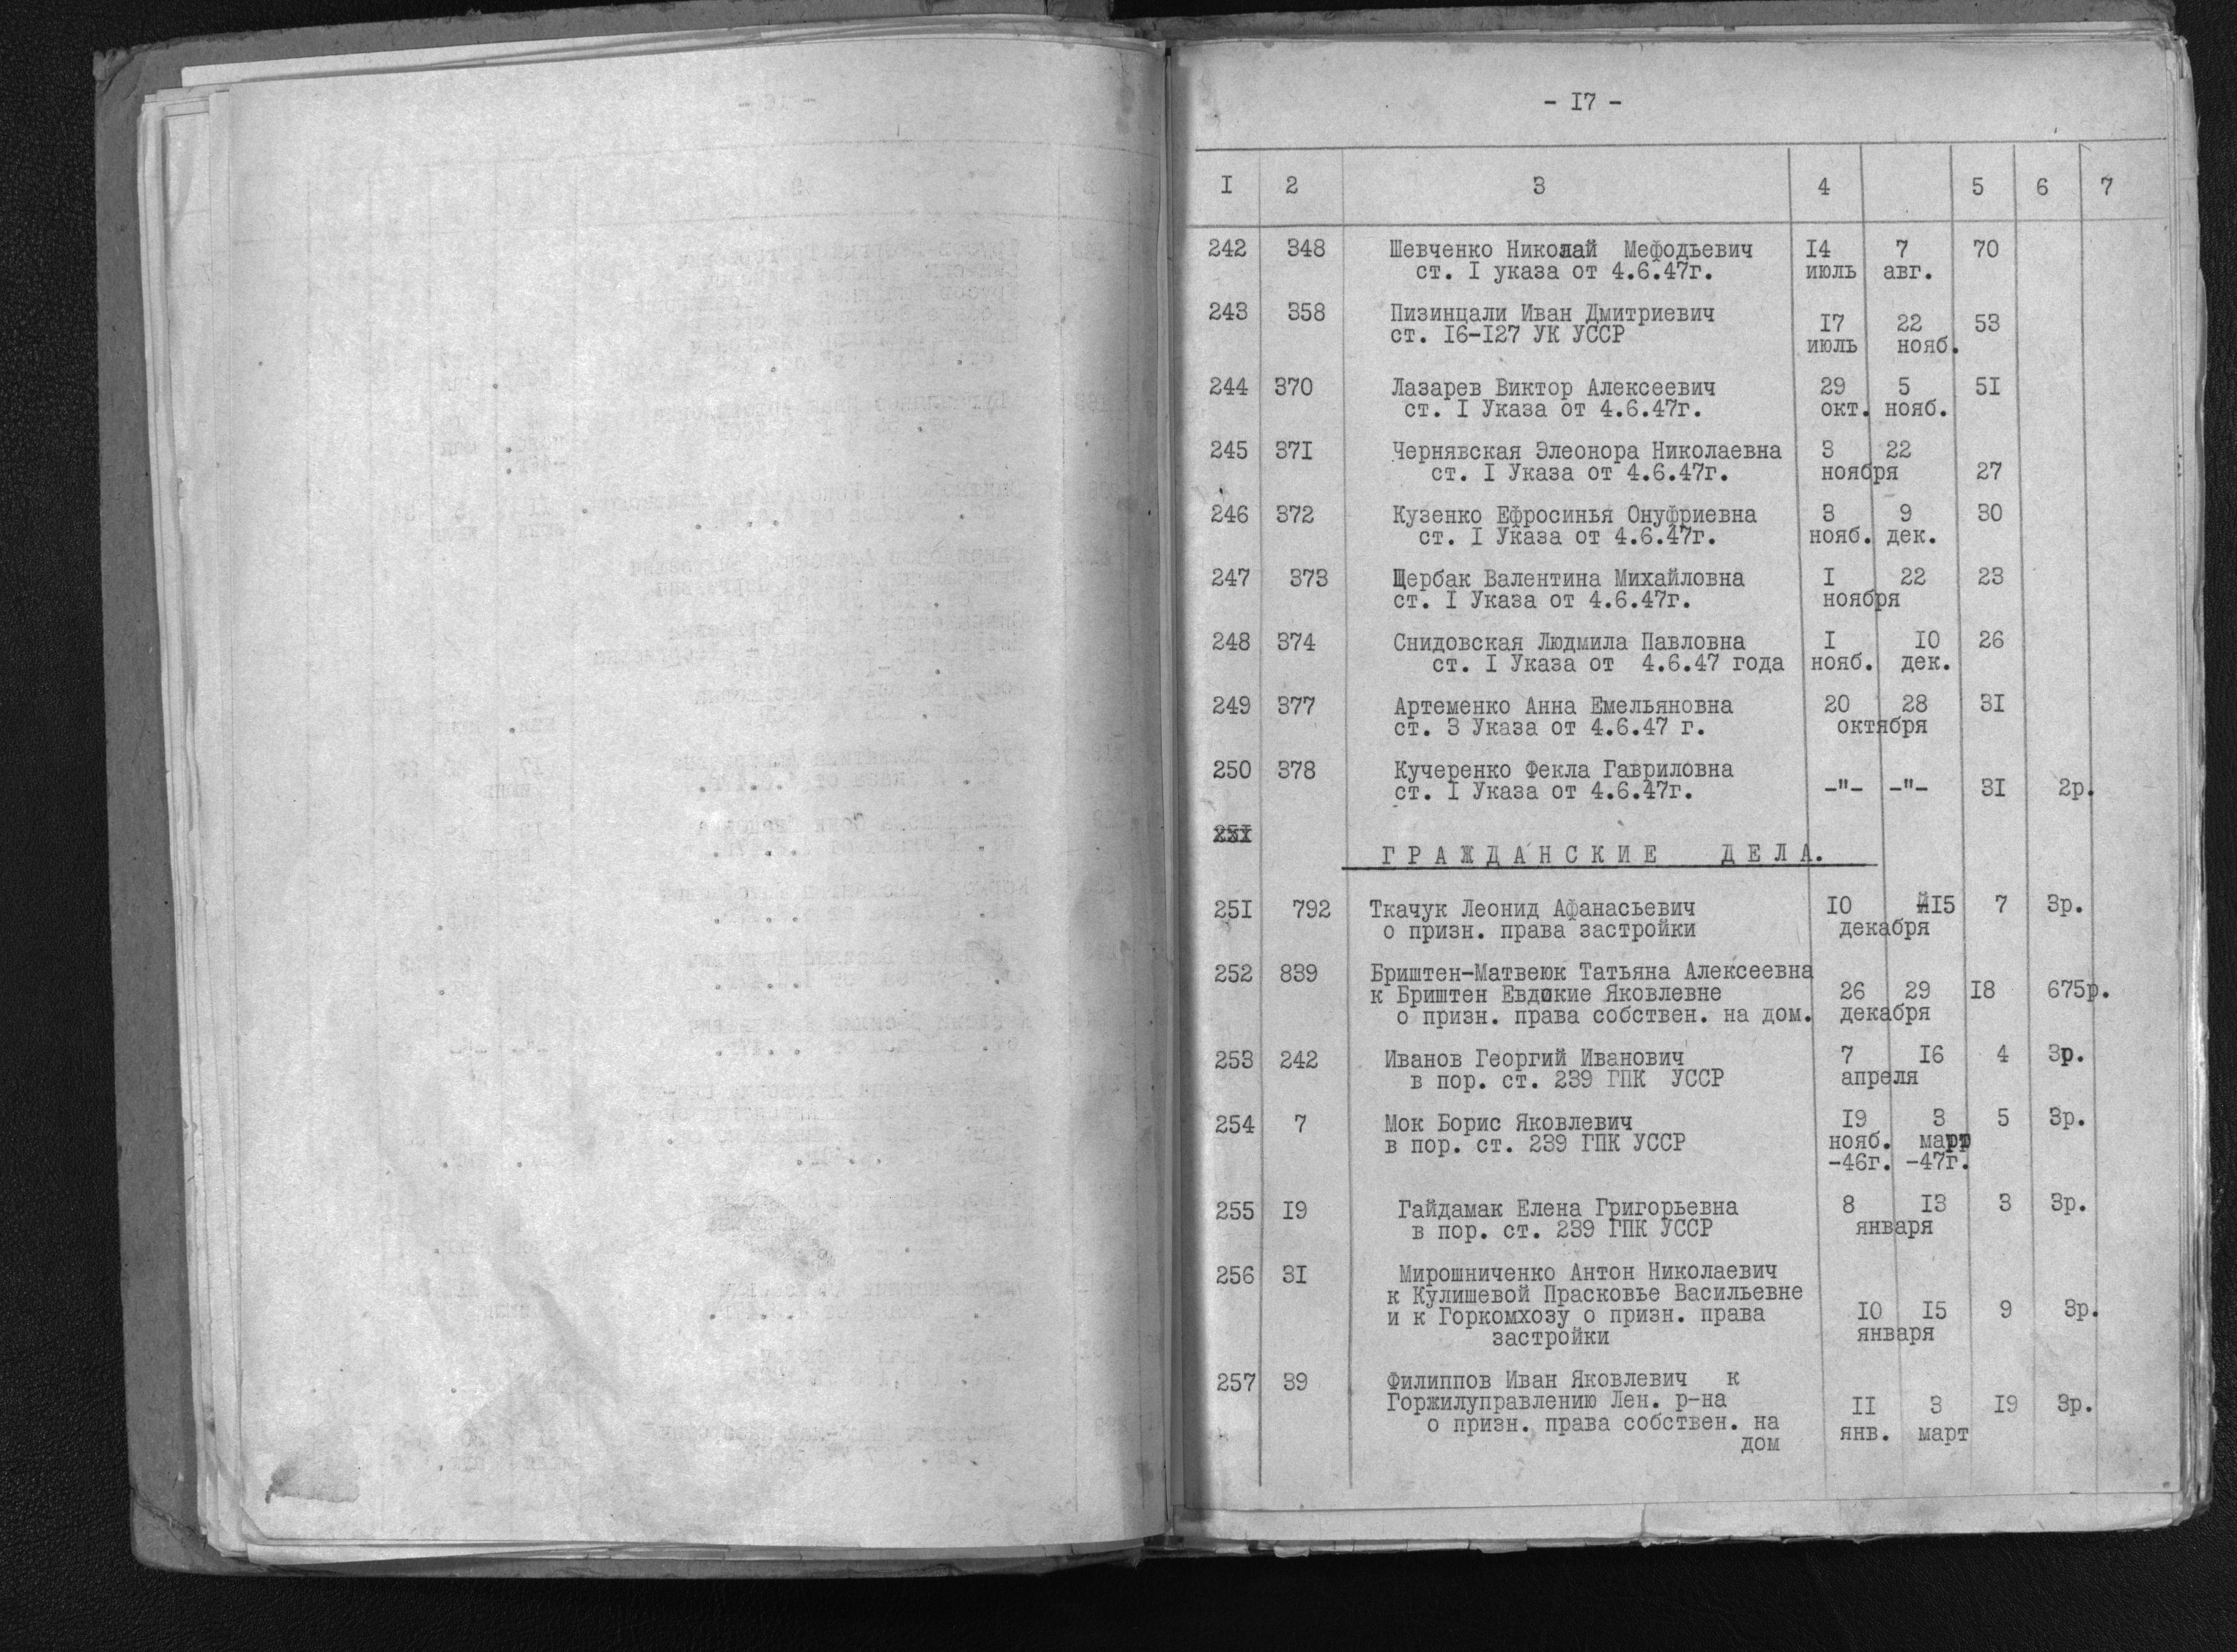 - I7 -
I 2 3 4 5 6 7
242 348 Шевченко Николай Мефодьевич I4 7 70
ст. I указа от 4.6.47г. июль авг.
243 358 Пизинцали Иван Дмитриевич
ст. I6-I27 УК УССР I7 22 53
июль нояб.
244 370 Лазарев Виктор Алексеевич 29 5 5I
ст. I Указа от 4.6.47г. окт. нояб.
245 37I Чернявская Элеонора Николаевна 3 22
ст. I Указа от 4.6.47г. ноября 27
246 372 Кузенко Ефросинья Онуфриевна 3 9 30
ст. I Указа от 4.6.47г. нояб. дек.
247 373 Щербак Валентина Михайловна I 22 23
ст. I Указа от 4.6.47г. ноября
248 374 Снидовская Людмила Павловна I I0 26
ст. I Указа от 4.6.47 года нояб. дек.
249 377 Артеменко Анна Емельяновна 20 28 3I
ст. 3 Указа от 4.6.47 г. октября
250 378 Кучеренко Фекла Гавриловна
ст. I Указа от 4.6.47г. -"- -"- 3I 2р.
ГРАЖДАНСКИЕ ДЕЛА.
25I 792 Ткачук Леонид Афанасьевич I0 I5 7 3р.
о призн. права застройки декабря
252 839 Бриштен-Матвеюк Татьяна Алексеевна
к Бриштен Евдокие Яковлевне 26 29 I8 675р.
о призн. права собствен. на дом. декабря
253 242 Иванов Георгий Иванович 7 I6 4 3р.
в пор. ст. 239 ГПК УССР апреля
254 7 Мок Борис Яковлевич I9 3 5 3р.
в пор. ст. 239 ГПК УССР нояб. март
-46г. -47г.
255 I9 Гайдамак Елена Григорьевна 8 I3 3 3р.
в пор. ст. 239 ГПК УССР января
256 3I Мирошниченко Антон Николаевич
к Кулишевой Прасковье Васильевне
и к Горкомхозу о призн. права I0 I5 9 3р.
застройки января
257 39 Филиппов Иван Яковлевич к
Горжилуправлению Лен. р-на II 3 I9 3р.
о призн. права собствен. на янв. март
дом